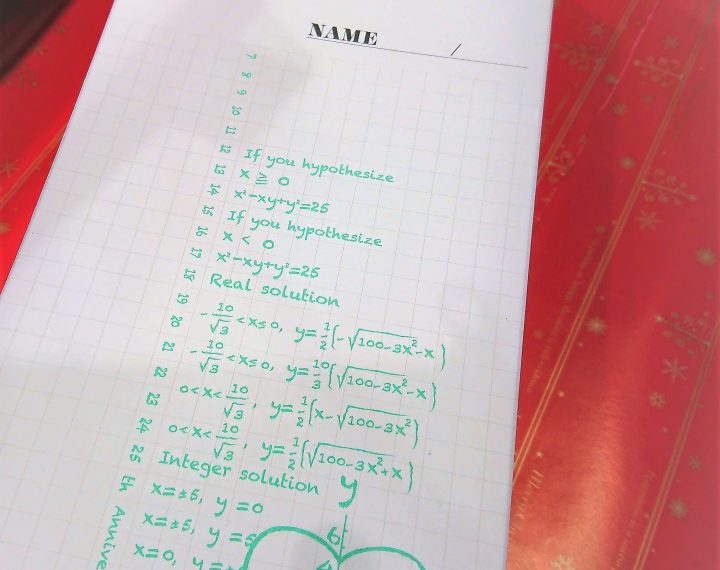 NAME /
7
8
9
10
11
12 If you hypothesize
13 x ≧ 0
14 x²-xy+y²=25
15 If you hypothesize
16 x < 0
17 x²-xy+y²=25
18 Real solution
19 -10/√3 <x≤0, y=1/2{-√100-3x²-x}
20
21 -10/√3 <x≤0, y=10/3{√100-3x²-x}
22 0<x<10/√3, y=1/2{x-√100-3x²}
23
24 0<x<10/√3, y=1/2{√100-3x²+x}
25 Integer solution
th x=±5, y=0
x=±5, y=5
x=0, y=
y
6
4